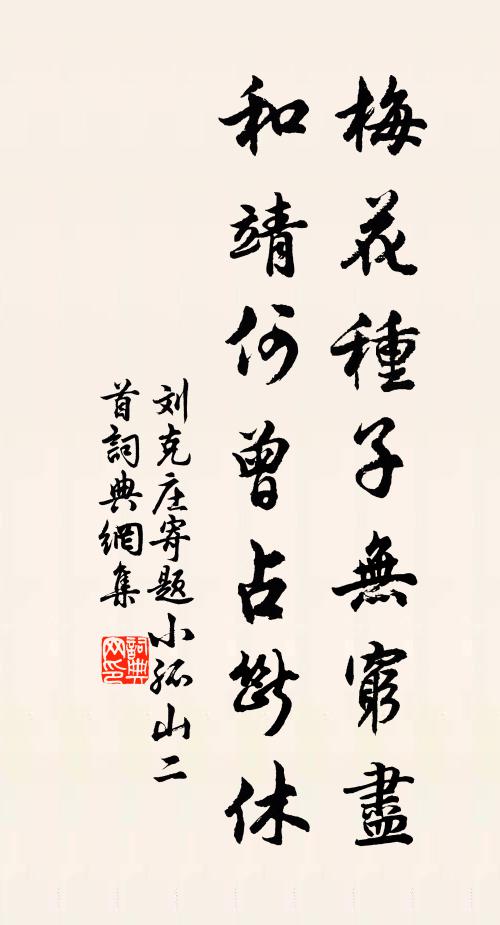 梅花種子無窮盡
和靖何曾占斷休
刘克庄寄题小孤山二
首詞典網集
詞典
网印